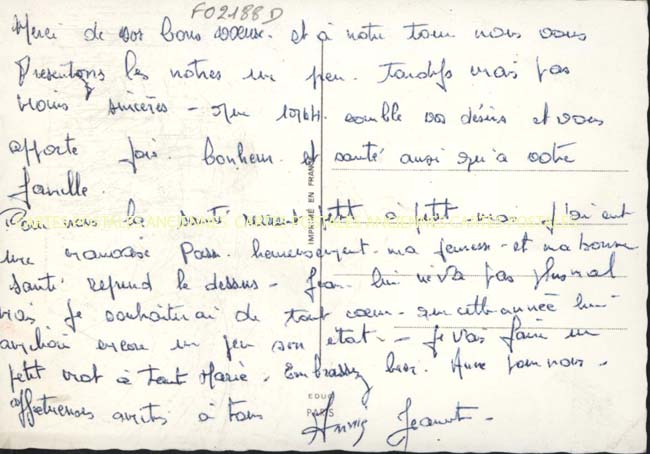 F02188D
Merci de vos bons voeux. et à notre tour nous vous
Présentons les nôtres un peu. Tardifs mais pas
moins sincères - que 1964. comble vos désirs et vous
apporte joie. bonheur. et santé aussi qu'à votre
famille.
Pour nous la santé petit à petit j'ai eut
une mauvaise Pass. heureusement. ma jeunesse - et ma bonne
santé reprend le dessus - Jean lui ne va pas plus mal
mais je souhaiterai de tout coeur. que cette année lui
améliore encore un peu son état. - je vais faire un
petit mot à Tant Marie. Embrassez bien. Anne pour nous.
affectueuses amitiés à tous Annie Jeannot -
IMPRIMÉ EN FRANCE
EDUG
PARIS